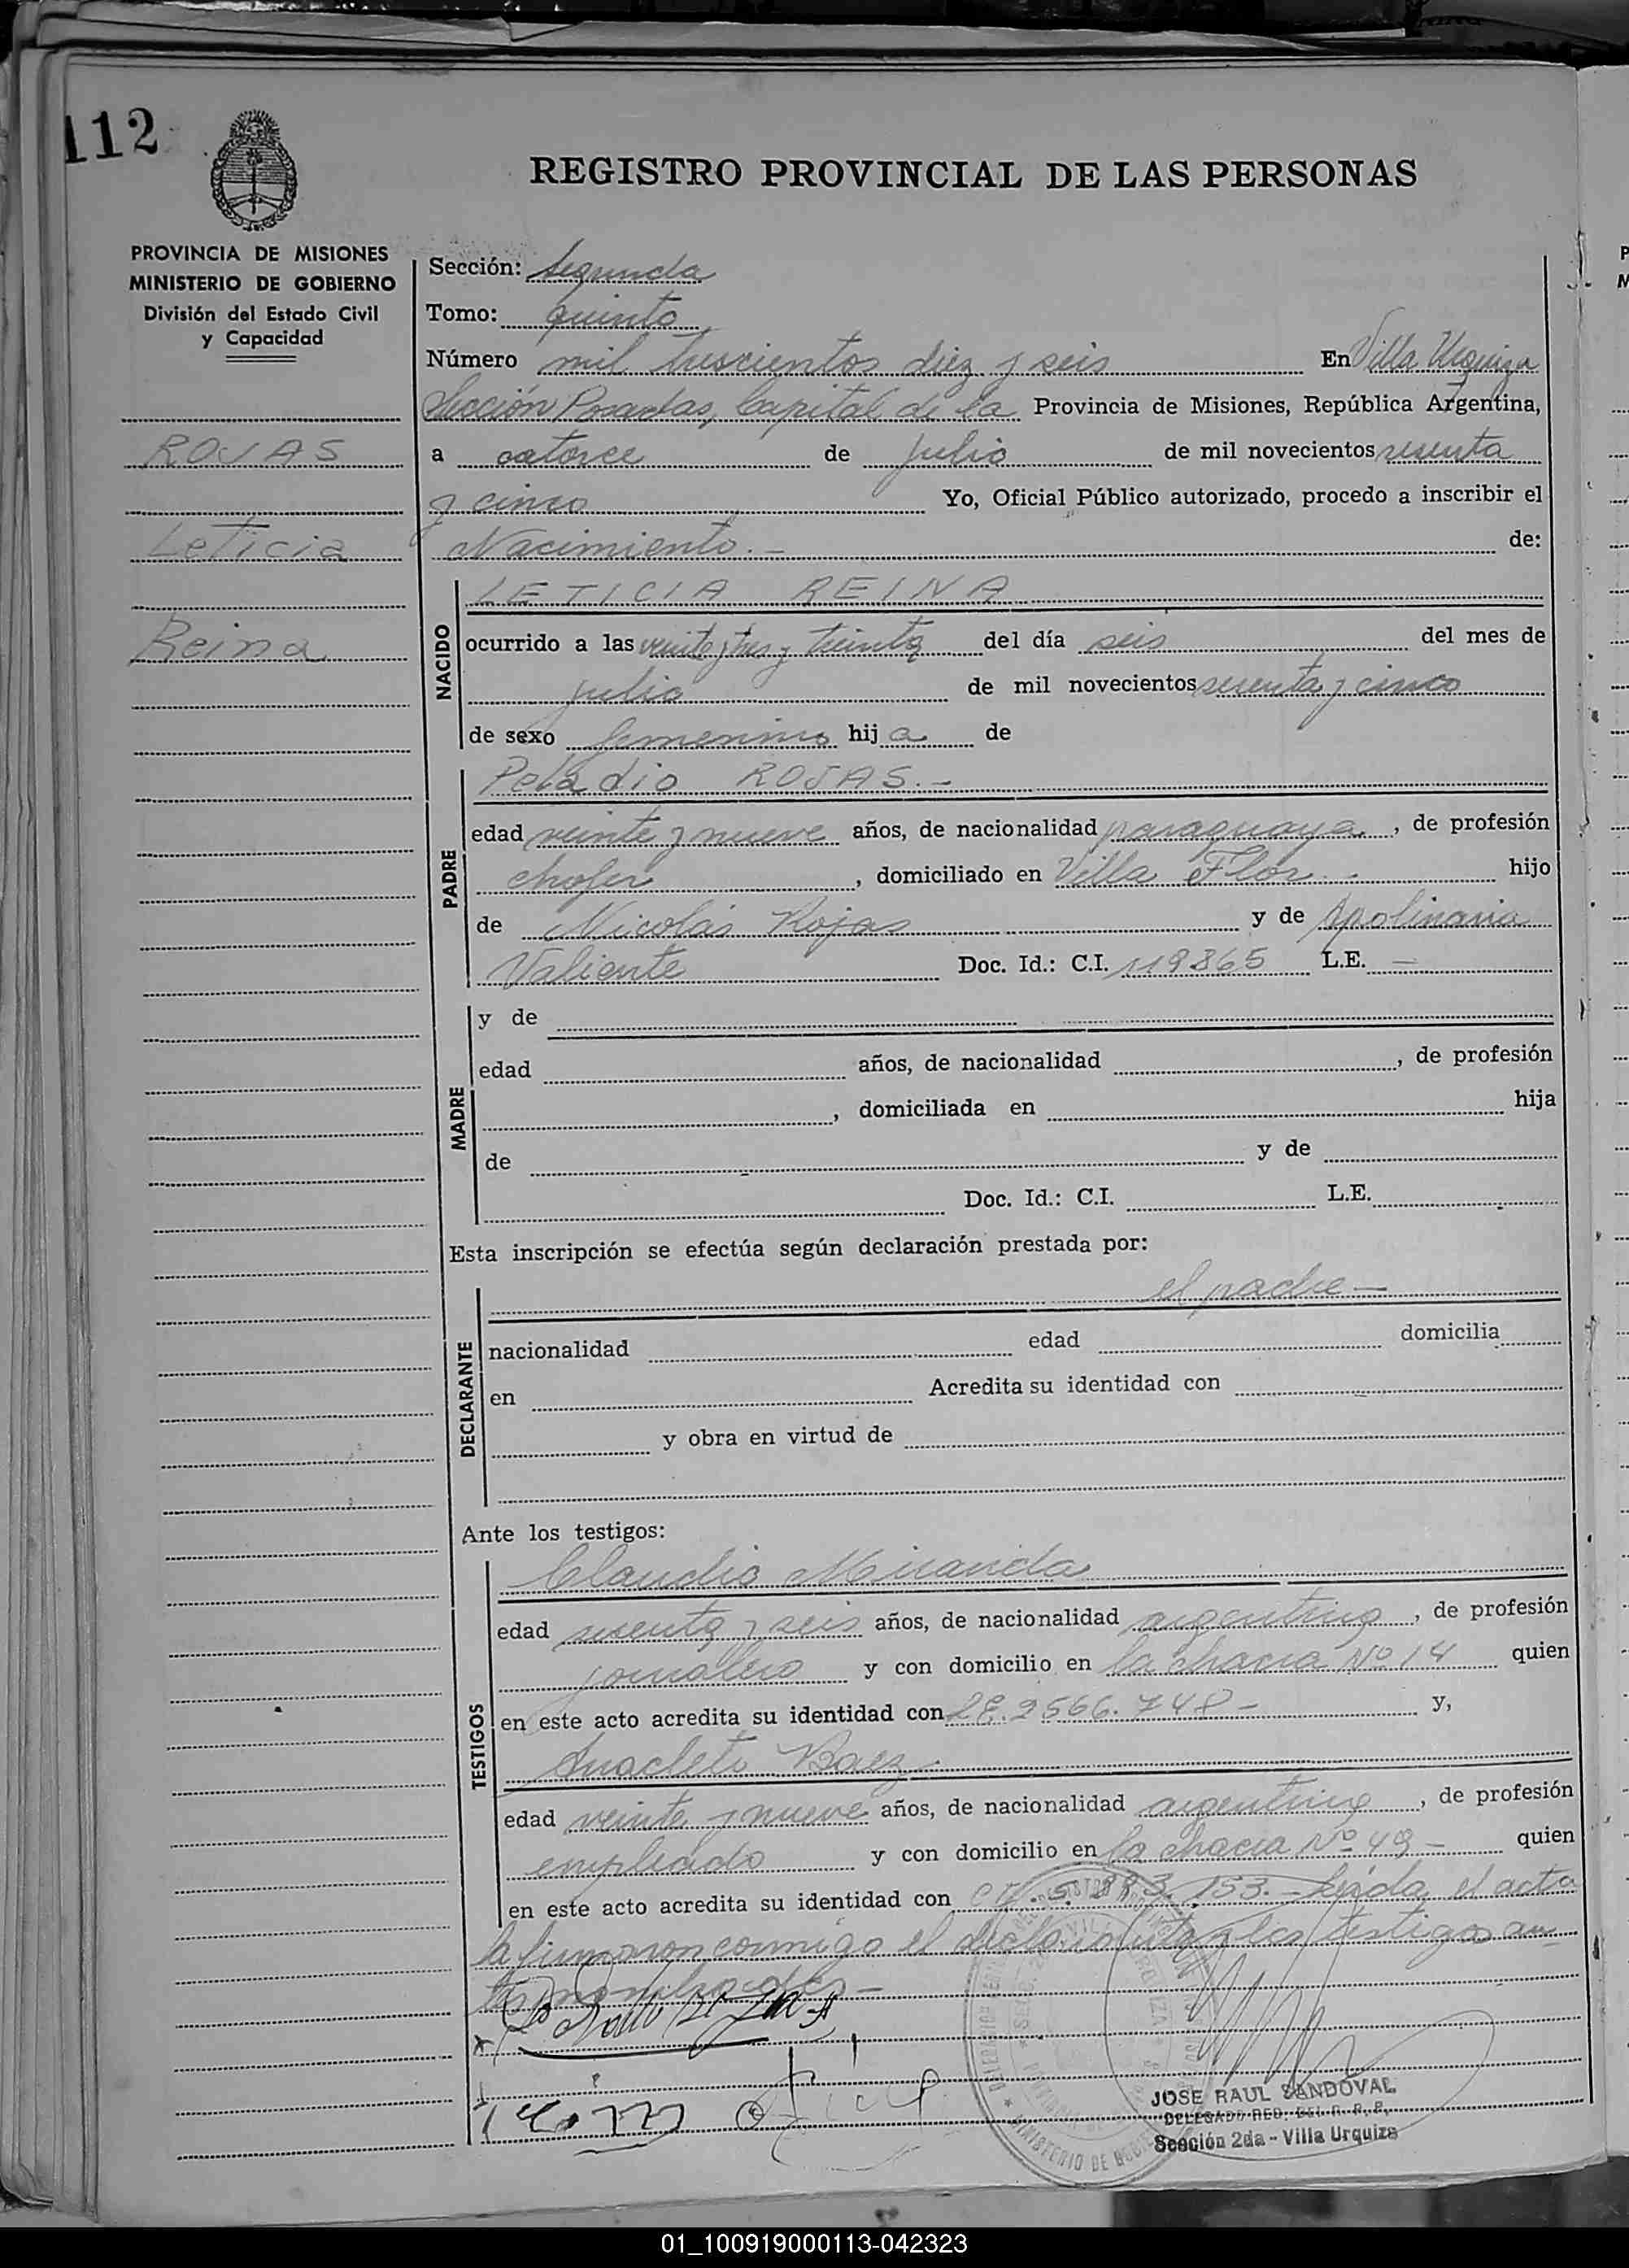 112
REGISTRO PROVINCIAL DE LAS PERSONAS
PROVINCIA DE MISIONES
MINISTERIO DE GOBIERNO
División del Estado Civil
y Capacidad
ROJAS
Leticia
Reina
Sección: Segunda
Tomo: quinto
Número mil trescientos diez y seis En Villa Urquiza
Sección Posadas, Capital de la Provincia de Misiones, República Argentina,
a catorce de julio de mil novecientos sesenta
y cinco Yo, Oficial Público autorizado, procedo a inscribir el
Nacimiento.- de:
NACIDO
LETICIA REINA
ocurrido a las veinte y tres y treinta del día seis del mes de
julio de mil novecientos sesenta y cinco
de sexo femenino hija de
PADRE
Peladio ROJAS.-
edad veinte y nueve años, de nacionalidad paraguaya, de profesión
chofer, domiciliado en Villa Flor hijo
de Nicolás Rojas y de Apolinaria
Valiente Doc. Id.: C.I. 119865 L.E. —
MADRE
y de
edad años, de nacionalidad , de profesión
, domiciliada en hija
de y de
Doc. Id.: C.I. L.E.
Esta inscripción se efectúa según declaración prestada por:
el padre —
DECLARANTE
nacionalidad edad domicilia
en Acredita su identidad con
y obra en virtud de
Ante los testigos:
TESTIGOS
Claudio Miranda
edad sesenta y seis años, de nacionalidad argentino, de profesión
jornalero y con domicilio en la chacra Nº 14 quien
en este acto acredita su identidad con 2566.748 - y,
Anacleto Baez
edad veinte y nueve años, de nacionalidad argentino, de profesión
empleado y con domicilio en la chacra Nº 49 - quien
en este acto acredita su identidad con 153.- Leída el acta
la firmaron conmigo el declarante y los testigos an-
tes nombrados -
JOSE RAUL SANDOVAL
DELEGADO REG. DEL R. P. P.
Sección 2da - Villa Urquiza
MINISTERIO DE
01_100919000113-042323